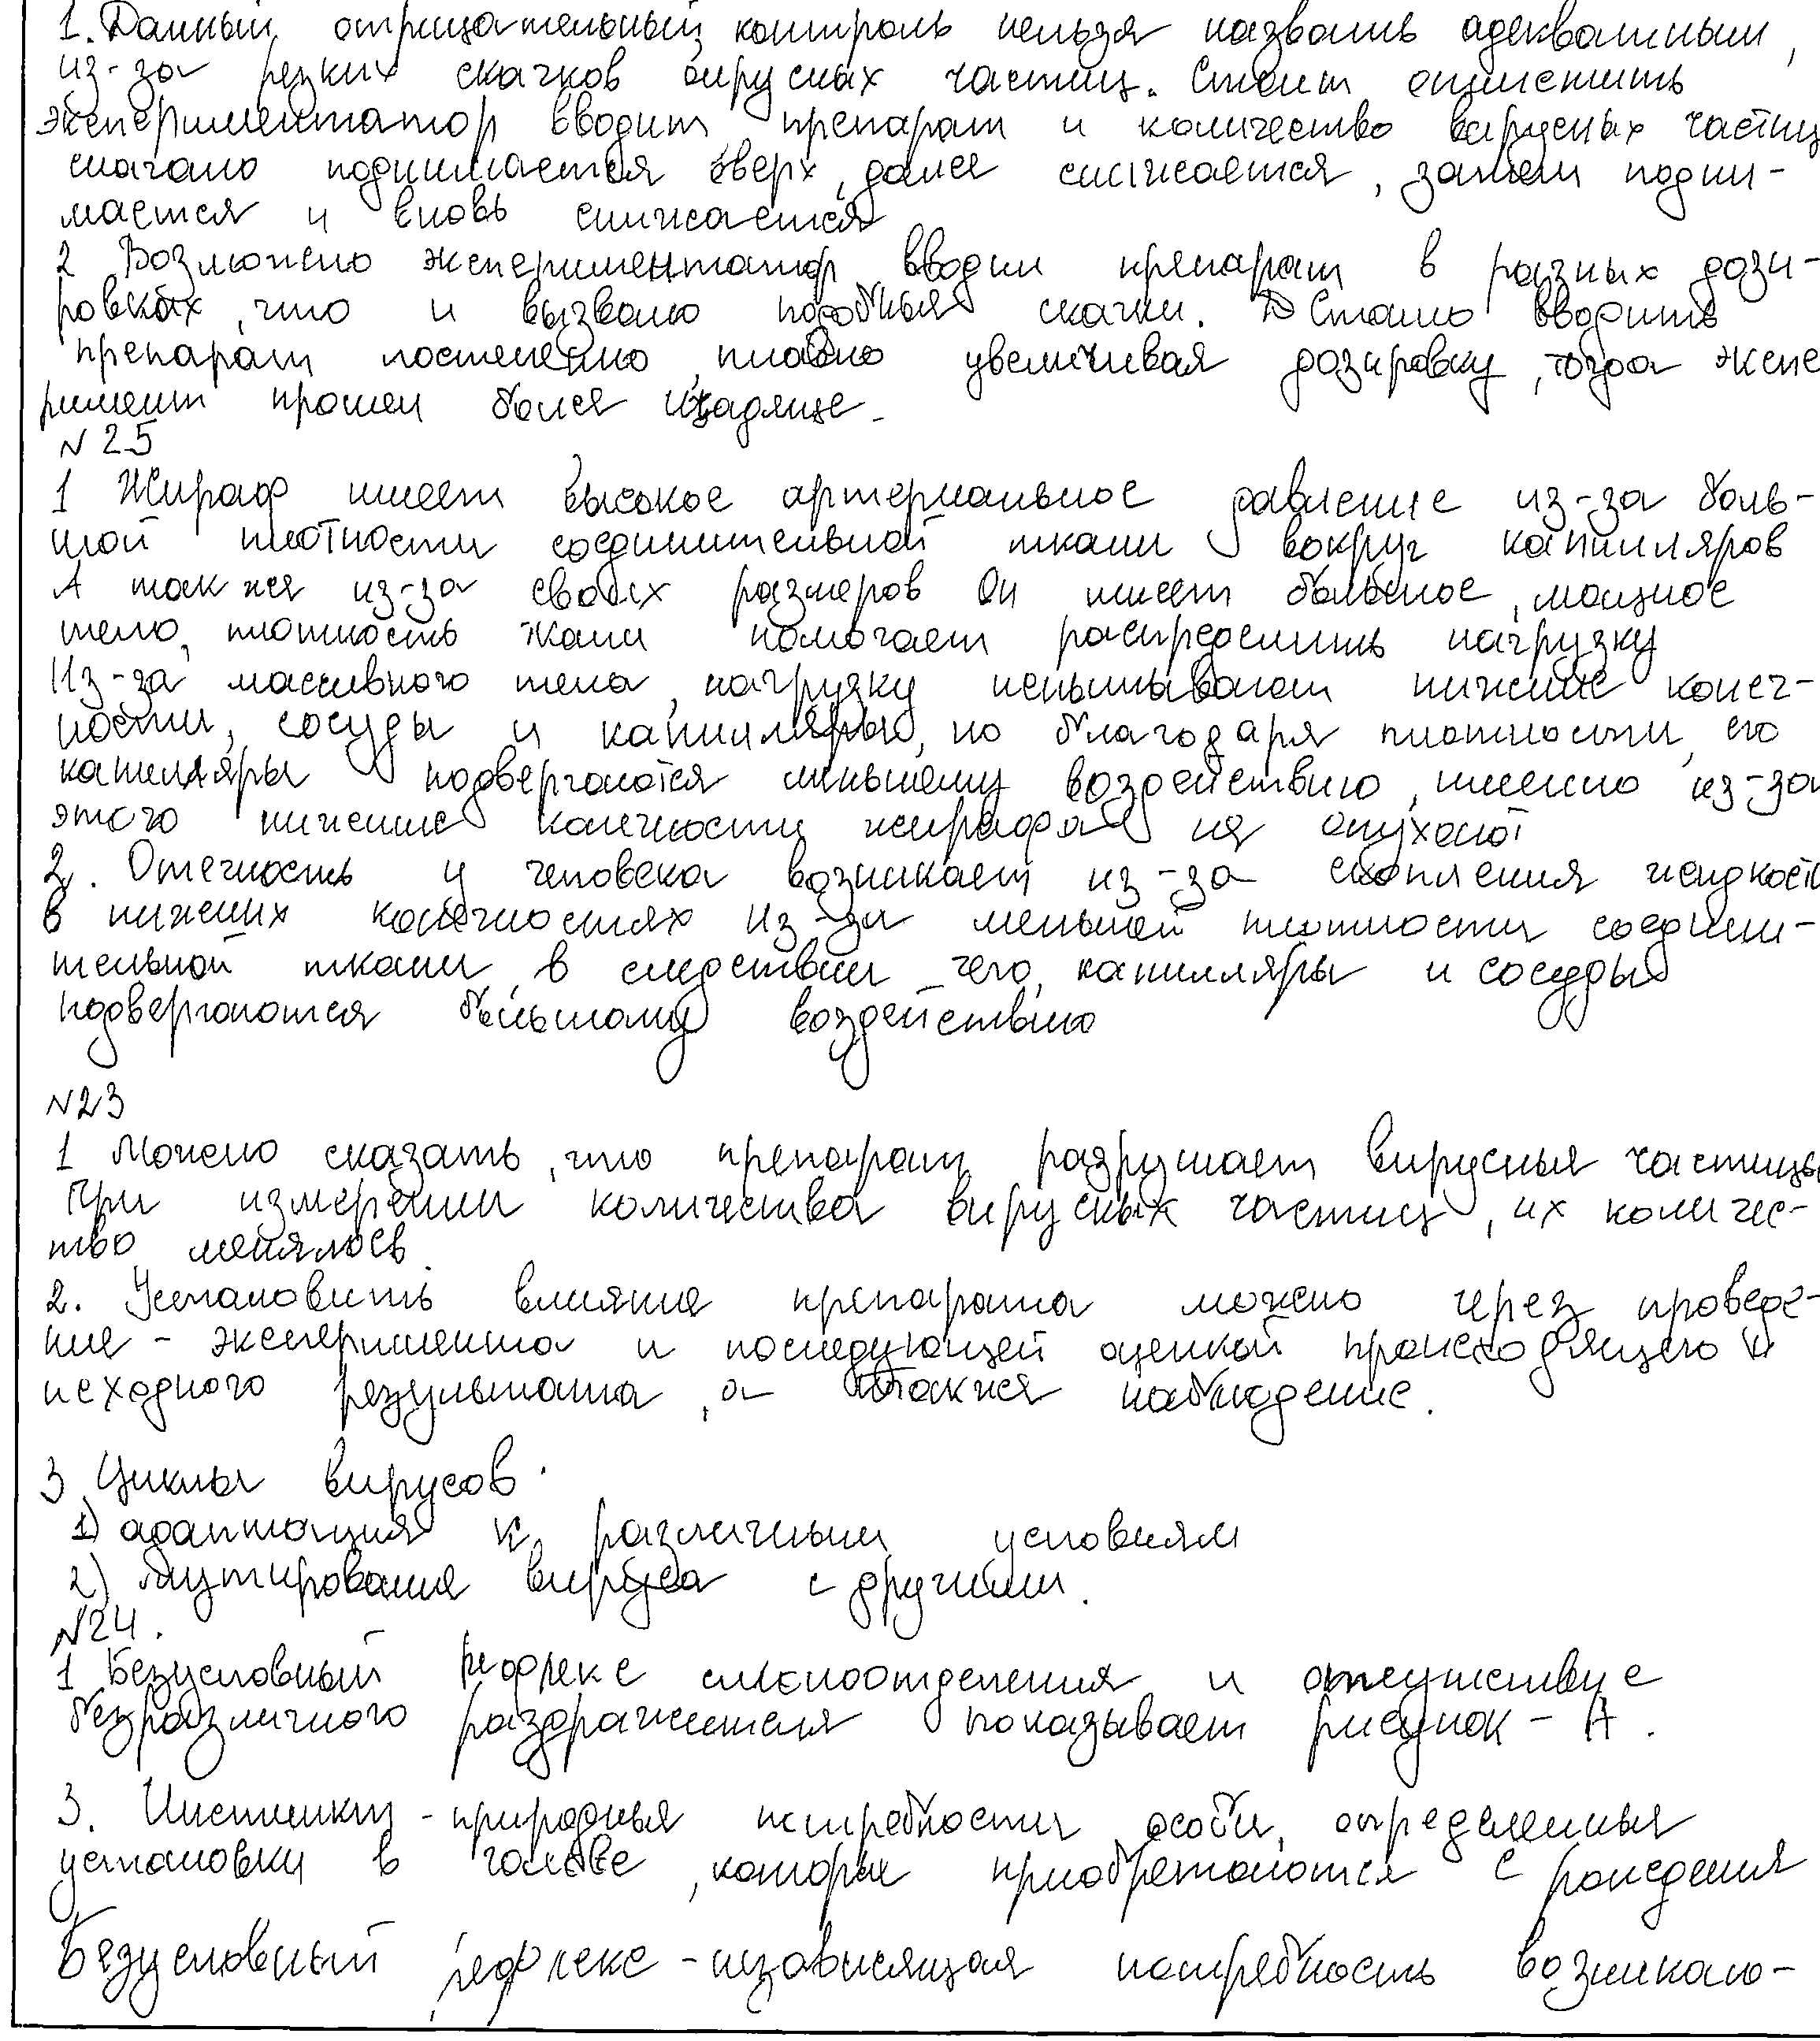 1. Данный отрицательный контроль нельзя назвать адекватным,
из-за резких скачков вирусных частиц. Стоит отметить
экспериментатор вводит препарат и количество вирусных частиц
сначало поднимается вверх, далее снижается, затем подни-
мается и вновь снижается
2 Возможно экспериментатор вводил препарат в разных дози-
ровках, что и вызвало подобные скачки. Стало вводить
препарат постепенно, плавно увеличивая дозировку, тогда экспе
римент прошел более щадяще.
N 25
1 Жираф имеет высокое артериальное давление из-за боль-
шой плотности соединительной ткани вокруг капилляров
А так же из-за своих размеров Он имеет большое, мощное
тело, плотность ткани помогает распределить нагрузку
Из-за массивного тела, нагрузку испытывают нижние конеч-
ности, сосуды и капилляры, но благодаря плотности его
капилляры подвергаются меньшему воздействию, именно из-за
этого нижние конечности жирафа не опухают
2. Отечность у человека возникает из-за скопления жидкости
в нижних конечностях из-за меньшей плотности соедини-
тельной ткани, в следствии чего, капилляры и сосуды
подвергаются большому воздействию
N23
1 Можно сказать, что препарат разрушает вирусные частицы
При измерении количества вирусных частиц, их количес-
тво менялось.
2. Установить влияние препарата можно через проведе-
ние - эксперимента и последующей оценкой происходящего и
исходного результата, а также наблюдение.
3 Циклы вирусов:
1) адаптация к различным условиям
2) мутирование вируса с другими.
N24.
1 Безусловный рефлекс слюноотделения и отсутствие
безразличного раздражителя показывает рисунок - А.
3. Инстинкт - природные потребности особи, определенные
установки в голове, которые приобретаются с рождения
Безусловный рефлекс - независящая потребность возникаю-